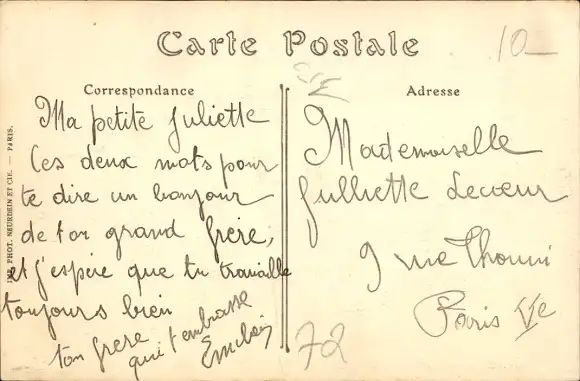 Carte Postale
10
Correspondance
Ma petite Juliette
Ces deux mots pour
te dire un bonjour
de ton grand frère,
et j'espère que tu travaille
toujours bien
ton frère
qui t'embrasse
Adresse
Mademoiselle
Julliette Lecœur
9 rue Thouin
Paris Ve
72
PHOT. NEURDEIN ET CIE. — PARIS.